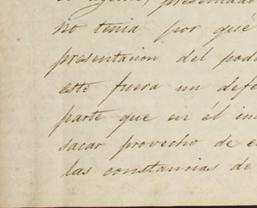 el agente, presentado
no tenia por qué
presentacion del pode
este fuera un defe
parte que en él in
sacar provecho de e
las constancias de